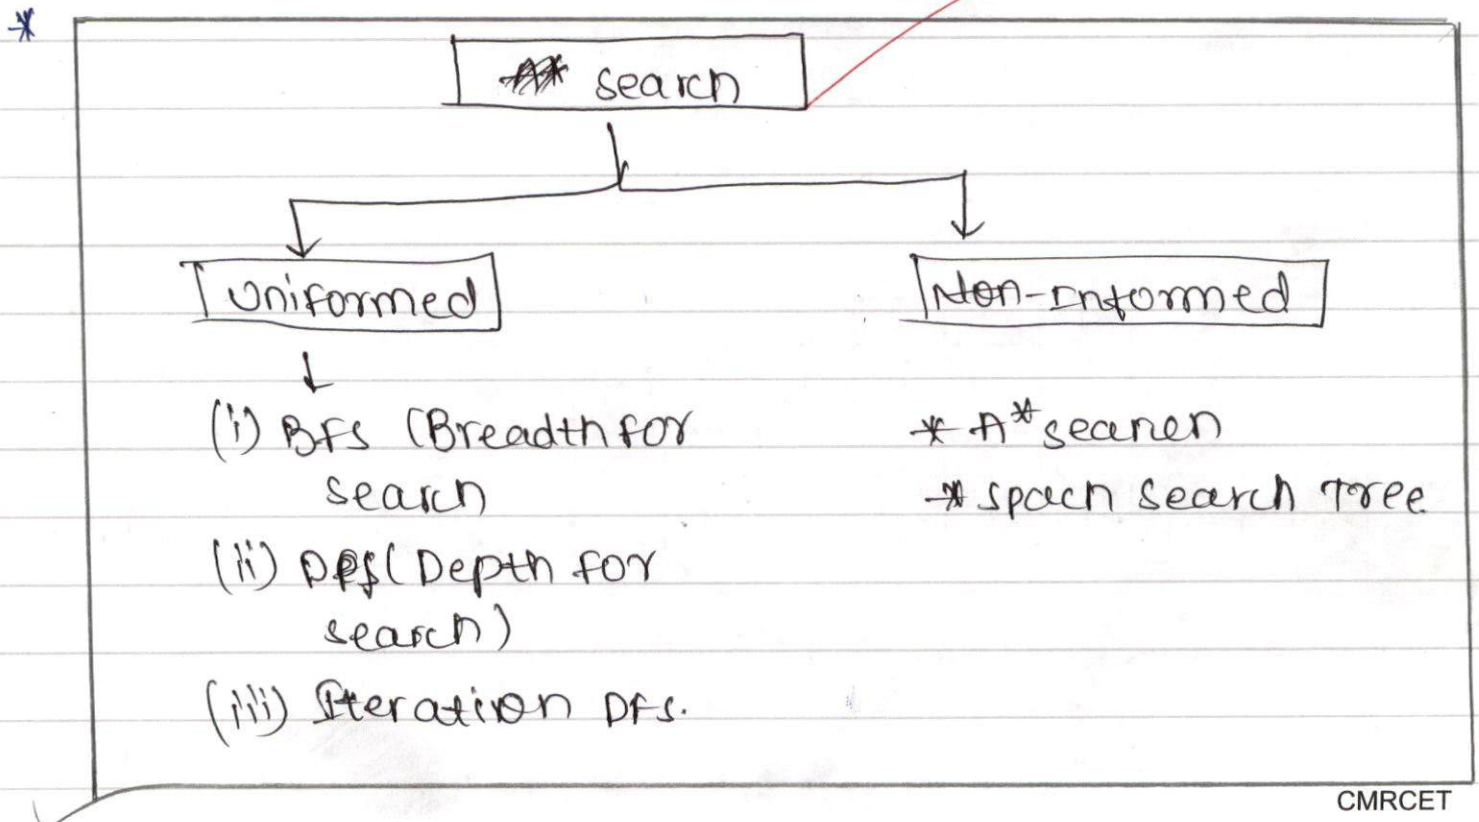 *
search
Uniformed
Non-Informed
(i) BFS (Breadth for
search
(ii) DFS (Depth for
search)
(iii) Iteration DFS.
* A* searcn
* spach search Tree
CMRCET